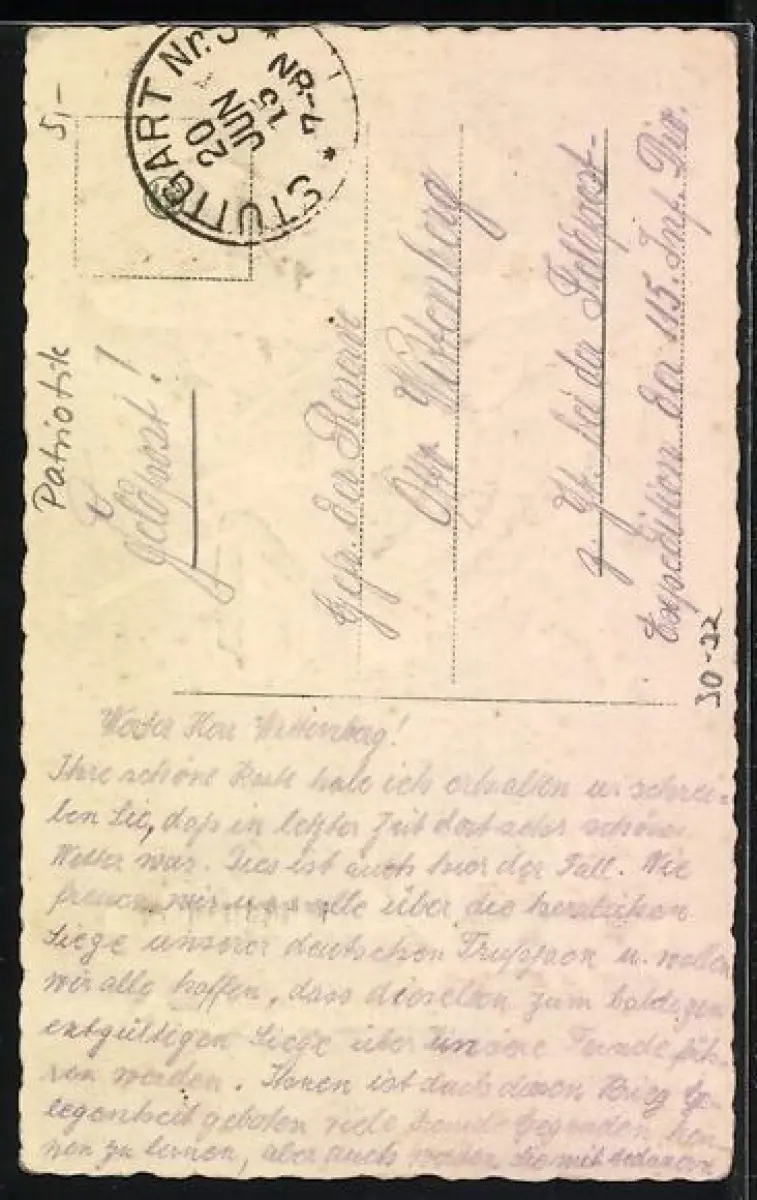 5,-
STUTTGART Nr. 5
20
JUN
15
7-8N
Patriotik
Feldpost!
Gefr. der Reserve
Wittenberg
z. Zt. bei der Feldpost-
Expedition der 115. Inf. Div.
30-32
Werter Herr Wittenberg!
Ihre schöne Karte habe ich erhalten u. schrei-
ben Sie, daß in letzter Zeit dort sehr schönes
Wetter war. Dies ist auch hier der Fall. Wie
freuen wir uns alle über die herrlichen
Siege unserer deutschen Truppen u. wollen
wir alle hoffen, dass dieselben zum baldigen
entgültigen Siege über unsere Feinde füh-
ren werden. Ihnen ist durch diesen Krieg Ge-
legenheit geboten viele fremde Gegenden ken-
nen zu lernen, aber auch werden Sie mit